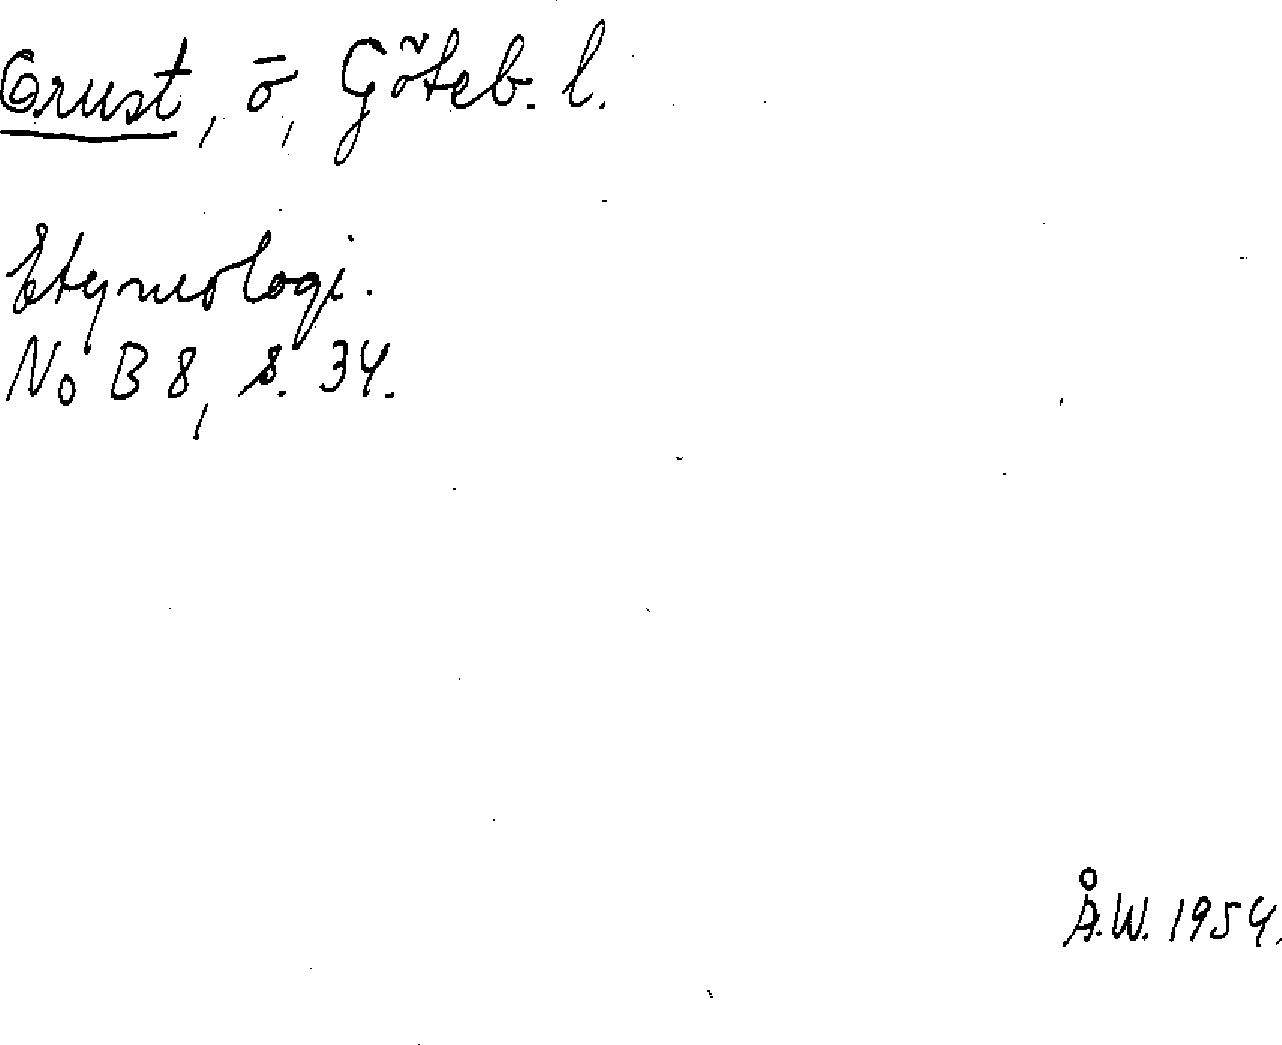 Orust, ö, Göteb. l.
Etymologi.
NoB 8, s. 34.
Å.W. 1954.